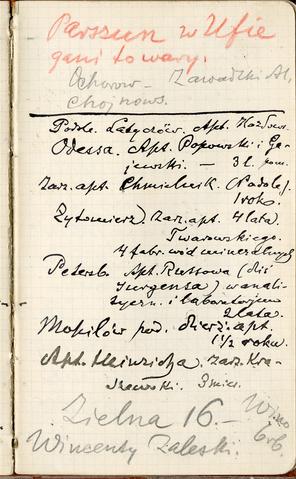 Parszun w Ufie
gani towary.
Ochorow- Zawadzki Al.
Chojnows.
Podole. Latyczów. Apt. Kozłows.
Odessa. Apt. Popowski i Ga-
jewski. — 3 l. pom.
Zarz. apt. Chmielnik. (Podole).
1 rok.
Żytomierz. Zarz. apt. 4 lata.
Twarowskiego.
4 fabr. wód mineralnych
Petersb. Apt. Russowa (dziś
Jurgensa) w anali-
tyczn. i laboratorjum
2 lata.
Mohilów pod. dzierż. apt.
1 1/2 roku.
Apt. Heinricha. Zarz. Kra-
szewski. 3 mies.
Zielna 16.— Wino
Wincenty Zaleski.